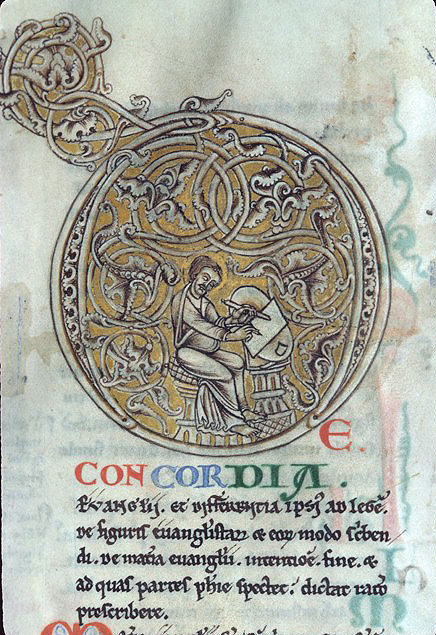 DE.
CONCORDIA.
Euangelii. et differentia ipsi ad legē.
de figuris euanglistaȝ & eoꝝ modo sc̄ben
di. de mat̄ia euanglii. intentiōe. fine. &
ad quas partes phīe spectet. dictat ratō
prescribere.